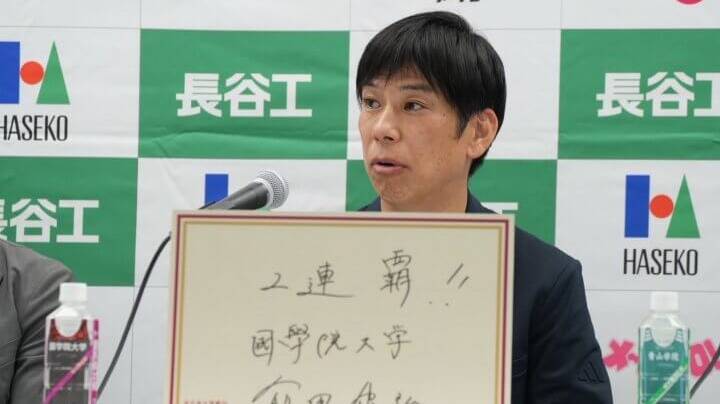 長谷工
長谷工
HASEKO
長谷工
HASEKO
2連覇!!
國學院大学
國學院大学
青山学院